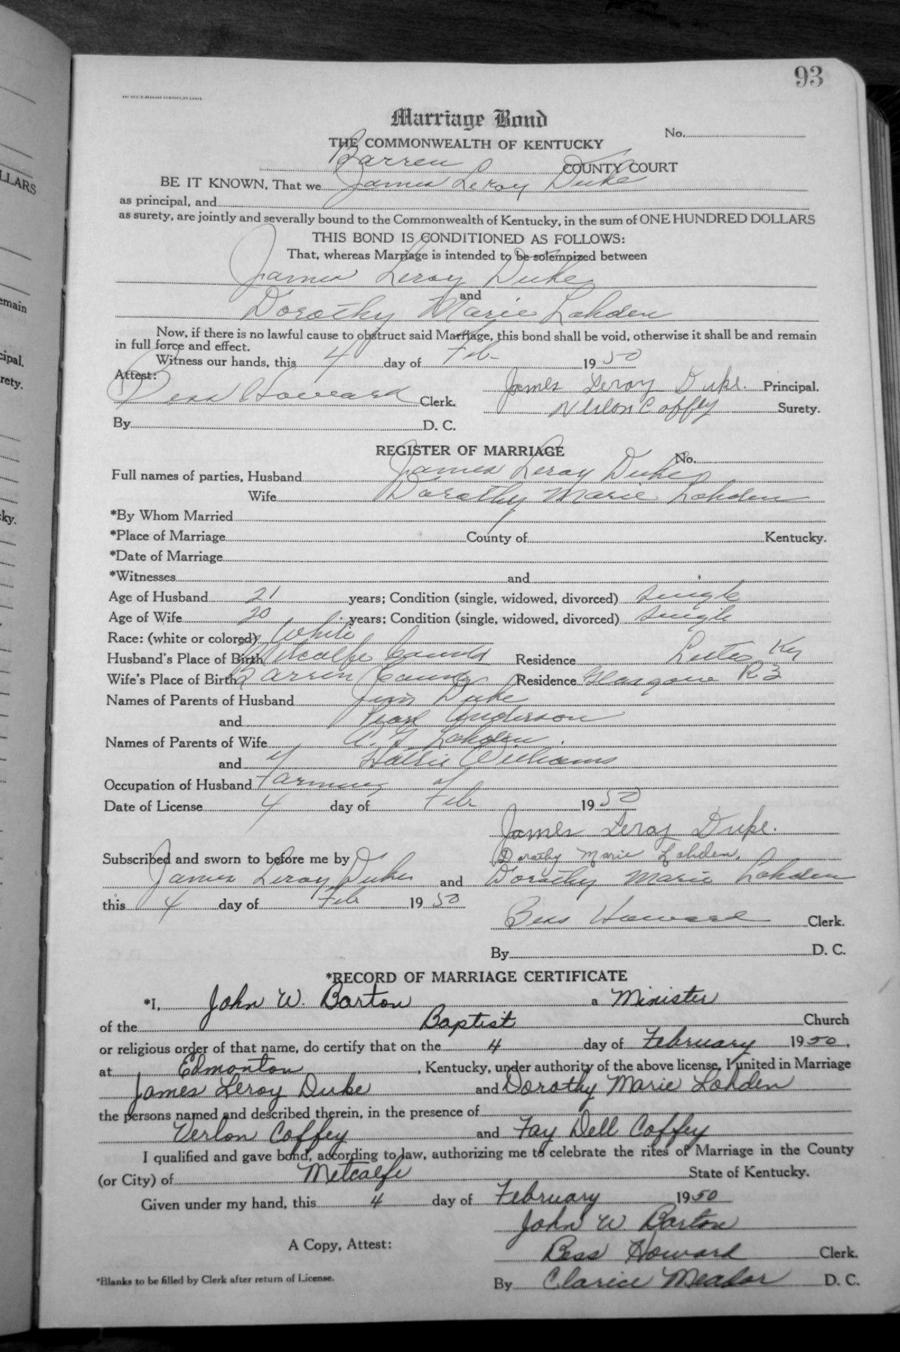 93
Marriage Bond
No.
THE COMMONWEALTH OF KENTUCKY
Barren COUNTY COURT
BE IT KNOWN, That we James Leroy Duke
as principal, and
as surety, are jointly and severally bound to the Commonwealth of Kentucky, in the sum of ONE HUNDRED DOLLARS
THIS BOND IS CONDITIONED AS FOLLOWS:
That, whereas Marriage is intended to be solemnized between
James Leroy Duke
and
Dorothy Marie Lohden
Now, if there is no lawful cause to obstruct said Marriage, this bond shall be void, otherwise it shall be and remain
in full force and effect.
Witness our hands, this 4 day of Feb 1950
Attest: James Leroy Duke. Principal.
Bess Howard Clerk. Verlon Coffey Surety.
By D. C.
REGISTER OF MARRIAGE
No.
Full names of parties, Husband James Leroy Duke
Wife Dorothy Marie Lohden
*By Whom Married
*Place of Marriage County of Kentucky.
*Date of Marriage
*Witnesses and
Age of Husband 21 years; Condition (single, widowed, divorced) single
Age of Wife 20 years; Condition (single, widowed, divorced) single
Race: (white or colored) White
Husband's Place of Birth Metcalfe County Residence Ky
Wife's Place of Birth Barren County Residence Glasgow R3
Names of Parents of Husband Jim Duke
and Pearl Anderson
Names of Parents of Wife Lohden
and Hallie Williams
Occupation of Husband Farming
Date of License 4 day of Feb 1950
James Leroy Duke.
Subscribed and sworn to before me by Dorothy Marie Lohden.
James Leroy Duke and Dorothy Marie Lohden
this 4 day of Feb 1950
Bess Howard Clerk.
By D. C.
*RECORD OF MARRIAGE CERTIFICATE
*I, John W. Barton a Minister
of the Baptist Church
or religious order of that name, do certify that on the 4 day of February 1950,
at Edmonton, Kentucky, under authority of the above license, I united in Marriage
James Leroy Duke and Dorothy Marie Lohden
the persons named and described therein, in the presence of
Verlon Coffey and Fay Dell Coffey
I qualified and gave bond, according to law, authorizing me to celebrate the rites of Marriage in the County
(or City) of Metcalfe State of Kentucky.
Given under my hand, this 4 day of February 1950
John W. Barton
A Copy, Attest: Bess Howard Clerk.
*Blanks to be filled by Clerk after return of License. By Clarice Meador D. C.